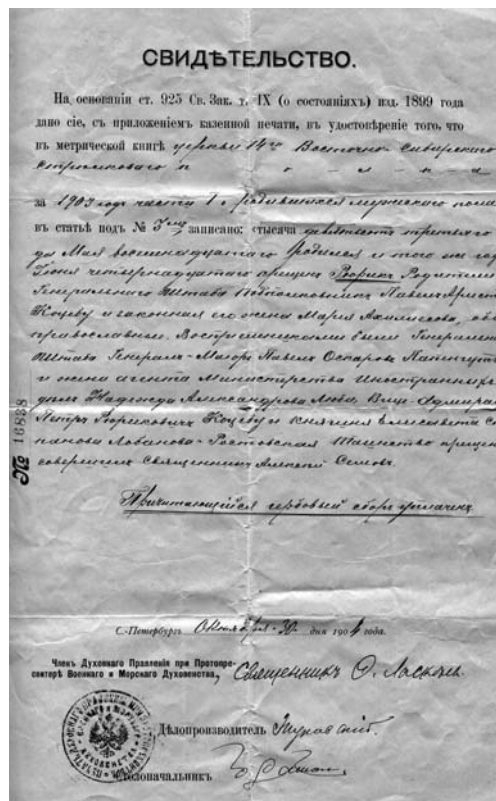 СВИДѢТЕЛЬСТВО.
На основаніи ст. 925 Св. Зак. т. IX (о состояніяхъ) изд. 1899 года
дано сіе, съ приложеніемъ казенной печати, въ удостовѣреніе того, что
въ метрической книгѣ церкви 14го Восточно-Сибирскаго
Стрѣлковаго п о л к а
за 1903 годъ части I о родившихся мужскаго пола
въ статьѣ подъ № 3мъ записано: тысяча девятьсотъ третьяго
да Мая восемнадцатаго родился и того же го
Іюня четырнадцатаго крещенъ Рюрикъ Родители
Генеральнаго Штаба Подполковникъ Павелъ
Коцебу и законная его жена Марія Ахиллесова,
православные. Воспріемниками были Генеральна
Штаба Генералъ-Маіоръ Павелъ Оскаровъ
и жена агента Министерства Иностранныхъ
дѣлъ Надежда Александрова Люба, Вице-Адмирал
Петръ Рюриковичъ Коцебу и княгиня Елисавета Сте
панова Лобанова-Ростовская Таинство крещен
совершилъ Священникъ Алексій
№ 16838
Причитающійся гербовый сборъ уплаченъ
С.-Петербургъ. Октября 30 дня 1904 года.
Членъ Духовнаго Правленія при Протопре-
свитерѣ Военнаго и Морскаго Духовенства, Священникъ
Дѣлопроизводитель
Столоначальникъ